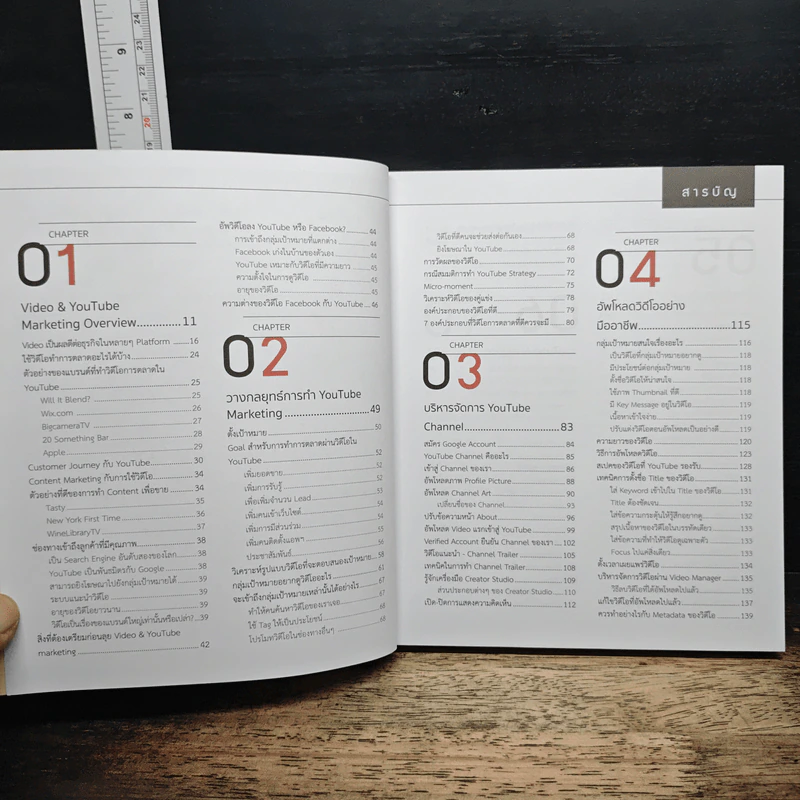 สารบัญ
CHAPTER
01
Video & YouTube
Marketing Overview..............11
Video เป็นผลดีต่อธุรกิจในหลายๆ Platform ......16
ใช้วิดีโอทำการตลาดอะไรได้บ้าง............24
ตัวอย่างของแบรนด์ที่ทำวิดีโอการตลาดใน
YouTube............25
Will It Blend?............25
Wix.com............26
BigcameraTV............27
20 Something Bar............28
Apple............29
Customer Journey กับ YouTube............30
Content Marketing กับการใช้วิดีโอ............34
ตัวอย่างที่ดีของการทำ Content เพื่อขาย............34
Tasty............35
New York First Time............36
WineLibraryTV............37
ช่องทางเข้าถึงลูกค้าที่มีคุณภาพ............38
เป็น Search Engine อันดับสองของโลก............38
YouTube เป็นพันธมิตรกับ Google............38
สามารถยิงโฆษณาไปยังกลุ่มเป้าหมายได้............39
ระบบแนะนำวิดีโอ............39
อายุของวิดีโอยาวนาน............39
วิดีโอเป็นเรื่องของแบรนด์ใหญ่เท่านั้นหรือเปล่า?...39
สิ่งที่ต้องเตรียมก่อนลุย Video & YouTube
marketing............42
อัพวิดีโอลง YouTube หรือ Facebook?............44
การเข้าถึงกลุ่มเป้าหมายที่แตกต่าง............44
Facebook เก่งในบ้านของตัวเอง............44
YouTube เหมาะกับวิดีโอที่มีความยาว............45
ความตั้งใจในการดูวิดีโอ............45
อายุของวิดีโอ............45
ความต่างของวิดีโอ Facebook กับ YouTube......46
CHAPTER
02
วางกลยุทธ์การทำ YouTube
Marketing............49
ตั้งเป้าหมาย............50
Goal สำหรับการทำการตลาดผ่านวิดีโอใน
YouTube............52
เพิ่มยอดขาย............52
เพิ่มการรับรู้............52
เพื่อเพิ่มจำนวน Lead............53
เพิ่มคนเข้าเว็บไซต์............53
เพิ่มการมีส่วนร่วม............53
เพิ่มคนติดตั้งแอพฯ............56
ประชาสัมพันธ์............57
วิเคราะห์รูปแบบวิดีโอที่จะตอบสนองเป้าหมาย......58
กลุ่มเป้าหมายอยากดูวิดีโออะไร............61
จะเข้าถึงกลุ่มเป้าหมายเหล่านั้นได้อย่างไร............67
ทำให้คนค้นหาวิดีโอของเราเจอ............67
ใช้ Tag ให้เป็นประโยชน์............68
โปรโมทวิดีโอในช่องทางอื่นๆ............68
วิดีโอที่ดีคนจะช่วยส่งต่อกันเอง............68
ยิงโฆษณาใน YouTube............68
การวัดผลของวิดีโอ............70
กรณีสมมติการทำ YouTube Strategy............72
Micro-moment............75
วิเคราะห์วิดีโอของคู่แข่ง............78
องค์ประกอบของวิดีโอที่ดี............79
7 องค์ประกอบที่วิดีโอการตลาดที่ดีควรจะมี......80
CHAPTER
03
บริหารจัดการ YouTube
Channel............83
สมัคร Google Account............84
YouTube Channel คืออะไร............85
เข้าสู่ Channel ของเรา............86
อัพโหลดภาพ Profile Picture............88
อัพโหลด Channel Art............90
เปลี่ยนชื่อของ Channel............93
ปรับข้อความหน้า About............96
อัพโหลด Video แรกเข้าสู่ YouTube............99
Verified Account ยืนยัน Channel ของเรา......102
วิดีโอแนะนำ - Channel Trailer............105
เทคนิคในการทำ Channel Trailer............108
รู้จักเครื่องมือ Creator Studio............109
ส่วนประกอบต่างๆ ของ Creator Studio......110
เปิด-ปิดการแสดงความคิดเห็น............112
CHAPTER
04
อัพโหลดวิดีโออย่าง
มืออาชีพ............115
กลุ่มเป้าหมายสนใจเรื่องอะไร............116
เป็นวิดีโอที่กลุ่มเป้าหมายอยากดู............118
มีประโยชน์ต่อกลุ่มเป้าหมาย............118
ตั้งชื่อวิดีโอให้น่าสนใจ............118
ใช้ภาพ Thumbnail ที่ดี............118
มี Key Message อยู่ในวิดีโอ............119
เนื้อหาเข้าใจง่าย............119
ปรับแต่งวิดีโอตอนอัพโหลดเป็นอย่างดี............119
ความยาวของวิดีโอ............120
วิธีการอัพโหลดวิดีโอ............123
สเปคของวิดีโอที่ YouTube รองรับ............128
เทคนิคการตั้งชื่อ Title ของวิดีโอ............131
ใส่ Keyword เข้าไปใน Title ของวิดีโอ............131
Title ต้องชัดเจน............131
ใส่ข้อความกระตุ้นให้รู้สึกอยากดู............132
สรุปเนื้อหาของวิดีโอในบรรทัดเดียว............133
ใส่ข้อความที่ทำให้วิดีโอดูเฉพาะตัว............133
Focus ไปแค่สิ่งเดียว............133
ตั้งเวลาเผยแพร่วิดีโอ............134
บริหารจัดการวิดีโอผ่าน Video Manager............135
วิธีลบวิดีโอที่ได้อัพโหลดไปแล้ว............135
แก้ไขวิดีโอที่อัพโหลดไปแล้ว............137
ควรทำอย่างไรกับ Metadata ของวิดีโอ............139
9
8
24
23
22
21
20
19